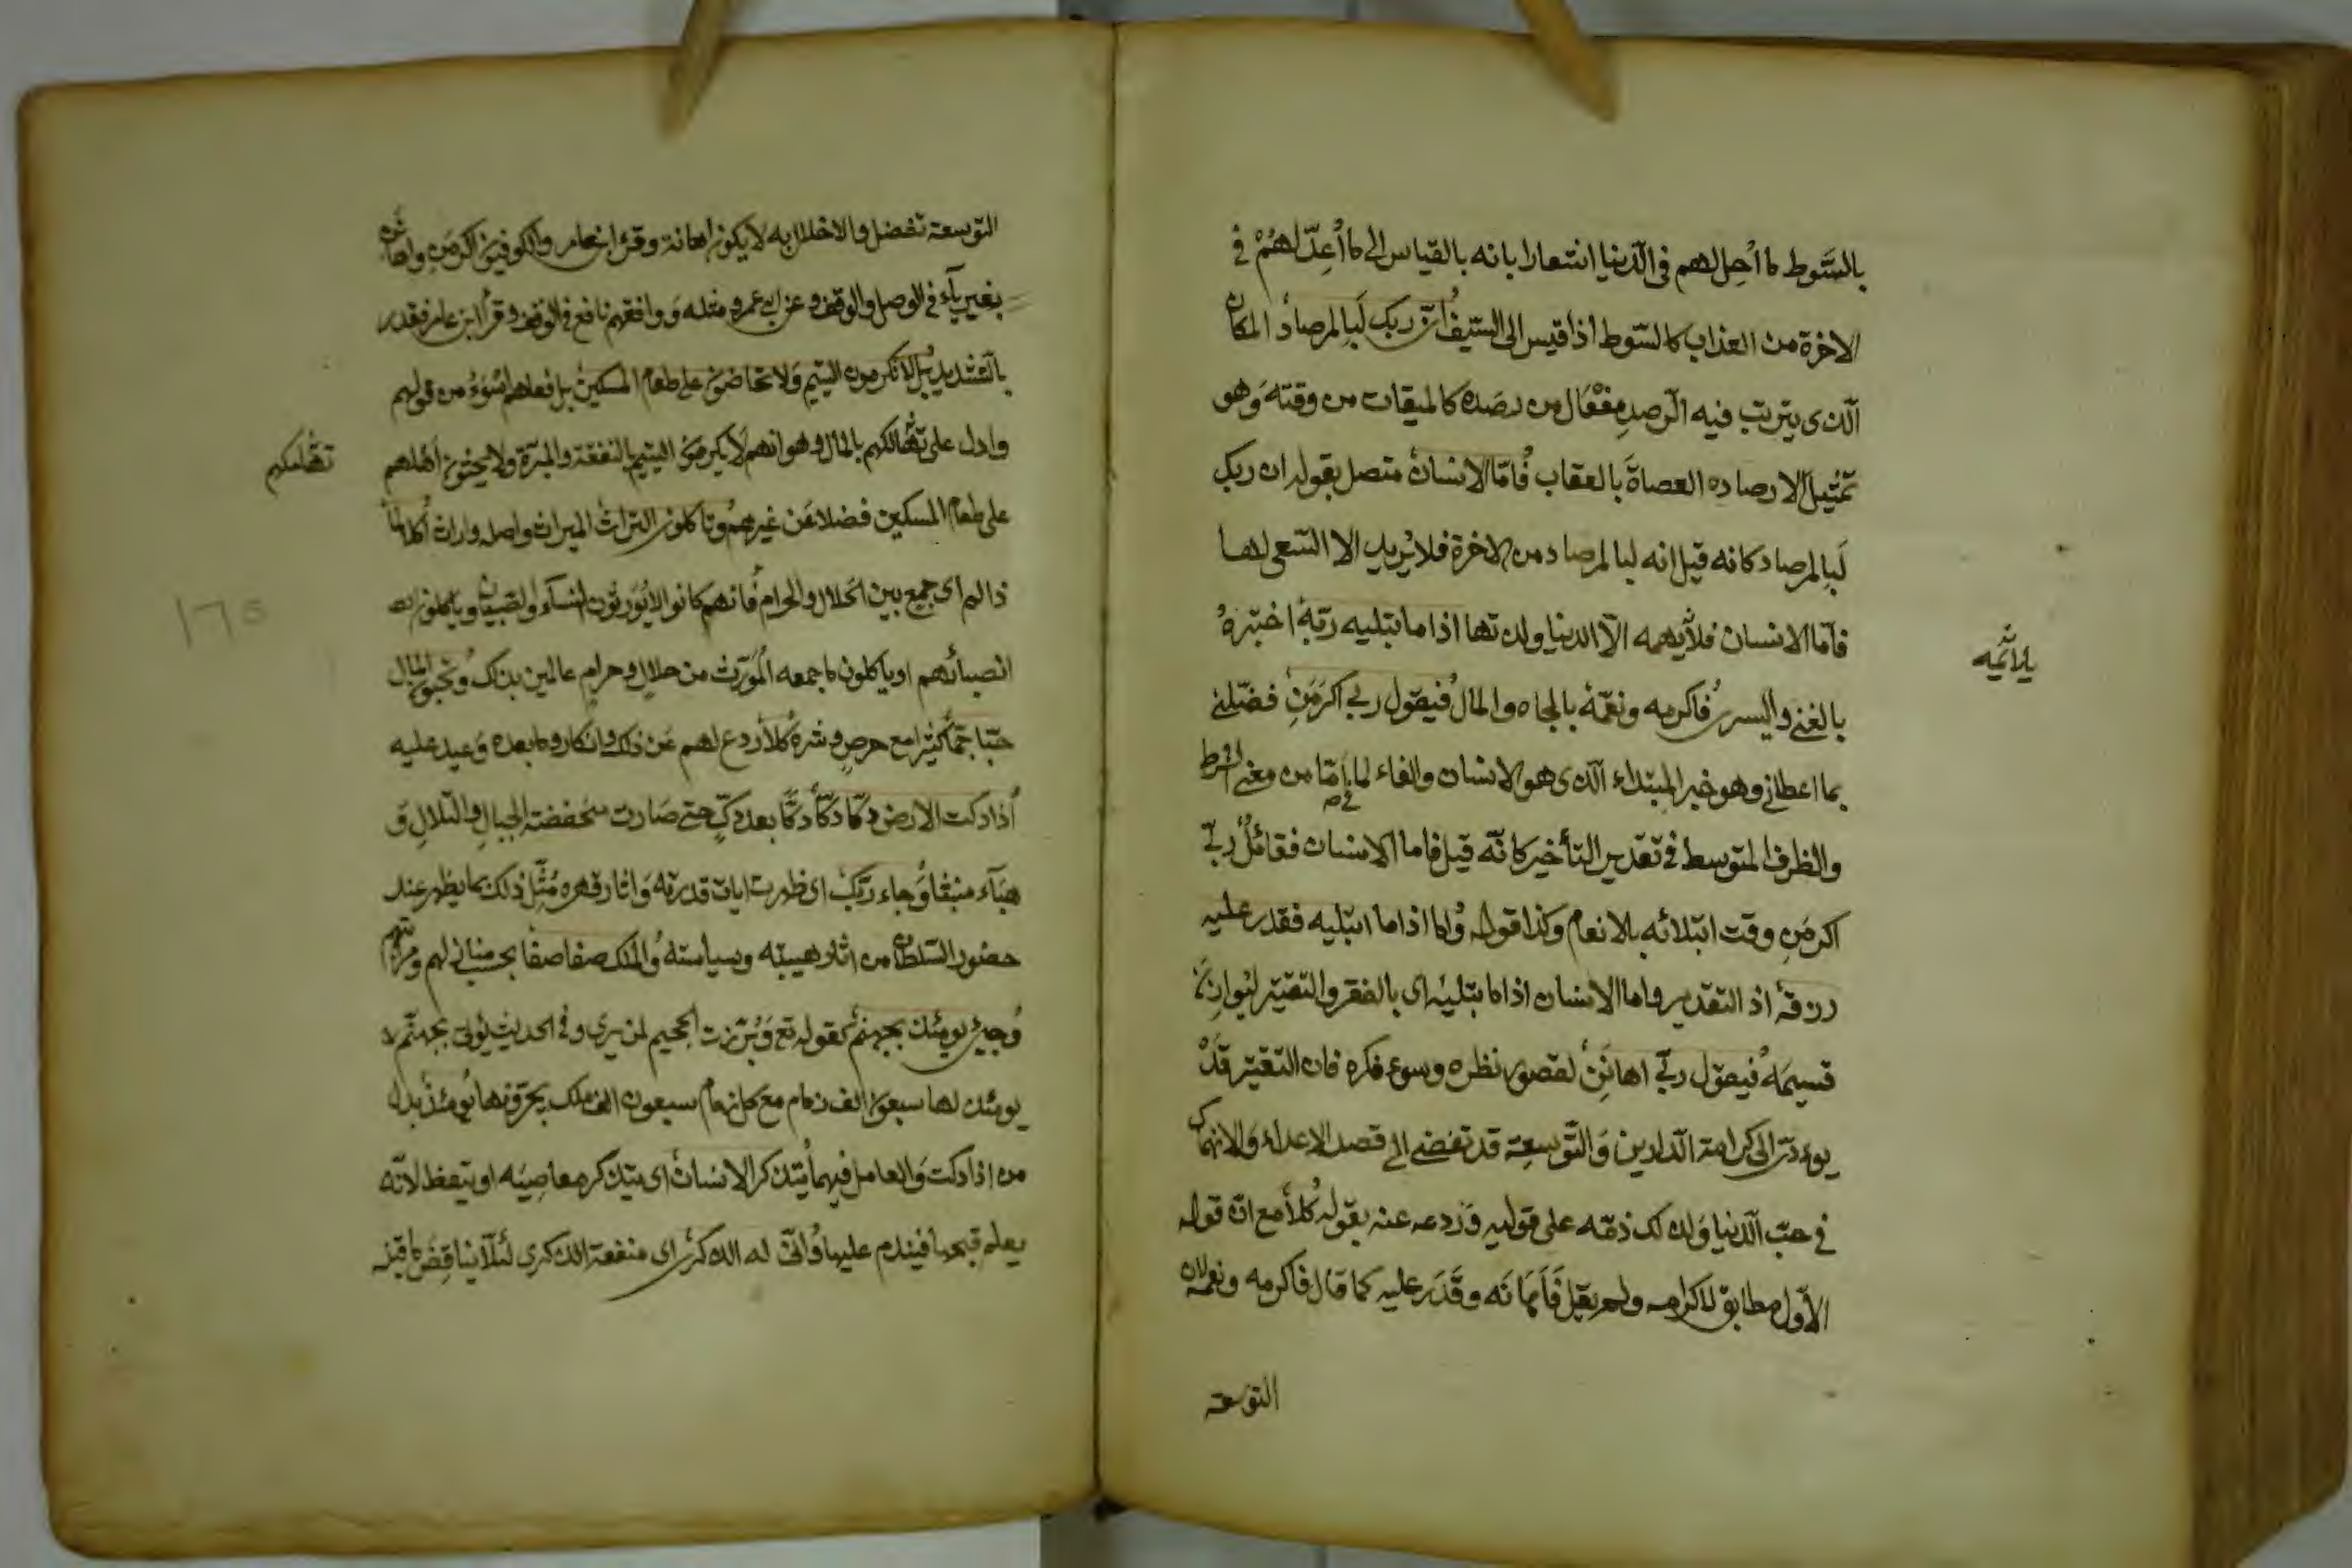 بالسَّوط ما أحل لهم فى الدّنيا اشعارا بانه بالقياس الى ما أُعِدّ لهُمْ فى
الاخرة من العذاب كالسّوط اذا قيس الى السّيف انّ ربك لَبِالمرصاد المكان
الّذى يترتب فيه الرّصد مِفْعَال من رصَده كالميقات من وقته وَهو
تمثيل لارصاده العصاةَ بالعقاب فأمّا الانسان متصل بقوله ان ربك
لَبِالمرصاد كانه قيل انه لبالمرصاد من الاخرة فلا يُريد الا السّعى لها
فامّا الانسان فلا يهمه الاّ الدنيا ولذتها اذا ما ابتليه ربّه اختبَرهُ
يلائمه
بالغنى واليسر فاكرمه ونعّمهُ بالجاه والمال فيقول ربى اكرَمَنِ فضّلنى
بما اعطانى وهو خبر المبتداء الّذى هو الانسان والفاء لما فى امّا من معنى الشرط
والظرف المتوسط فى تقدير التأخير كانّه قيل فاما الانسان فقائلٌ ربّى
اكرمَنِ وقت ابتلائه بالانعام وكذا قوله وامّا اذا ما ابتليه فقدر عليه
رزقهُ اذ التقدير واما الانسان اذا ما ابتليه اى بالفقر والتقتير ليوازن
قسيمَهُ فيقول ربّى اهانَنِ لقصور نظره وسوء فكره فان التقتير قَدْ
يوءدّى الى كرامة الدّارين وَالتّوسِعة قد تفضى الى قصد الاعداء وَالانهماك
فى حبّ الدّنيا وَلذلك ذمّه على قوليه وَرَدعه عنه بقوله كلّا مع انّ قوله
الاوّل مطابق لاكرامه ولم يقل فَأهانَه وقَدَر عليه كما قال فاكرمه ونعمه لان
التوسعة
التوسعة تفضل والاخلال به لا يكون اهانة وقرء ابن عامر والكوفيون اكرمَنِ واهانن
بغير يآء فى الوصل والوقف وعن ابى عمرو مثله وَوافقهم نافع فى الوقف وقرأ ابن عامر فقدر
بالتّشديد بل لا تكرمون اليتيم وَلا تحاضّون على طعام المسكين بل فعلهم اسْوَءُ من قولهم
وادل على تهالكهم بالمال وهو انهم لا يكرمون اليتيم بالنفقة والمبرّة ولا يحثون اهلهم
تهالكهم
على طعام المسكين فضلا عَن غيرهم وتاكلون التراث الميراث واصله وراث أكلا لمًّا
ذا لم اى جمع بين الحلال والحرام فانهم كانوا لا يُوَرّثون النسآء والصبيان وياكلون
انصبائهم او ياكلون ما جمعه المُورّث من حلال وحرامٍ عالمين بذلك وتحبّون المال
حبّا جمّا كثيرا مع حرصٍ وشره كلّا ردع لهم عَن ذلك وانكار وما بعده وَعيد عليه
اذا دكت الارض دكّا دكّا دكًّا بعد دكٍّ حتى صارت منخفضة الجبالِ والتلالِ وَ
هبَآء منبثّا وَجاء ربّك اى ظهرت ايات قدرته وَاثار قهره مُثّل ذلك بما يظهر عند
حضور السّلطان من اثار هيبته وسياسته والملك صفا صفّا بحسب منازلهم ومراتبهم
وَجيئ يومئذ بجهنّم كقوله تع وَبُرّزت الجحيم لمن يرى وفى الحديث يُؤتى بجهنّم
يومئذ لها سبعون الف زمام مع كل زمام سبعون الف ملك يجرّونها يومئذ بدل
من اذا دكت وَالعامل فيهما يتذكر الانسان اى يتذكر معاصيَه او يتعظ لانّه
يعلم قبحها فيندم عليها وَانّى له الذكرى اى منفعة الذكرى لئلّا يناقضَ ما قبله
١٦٥